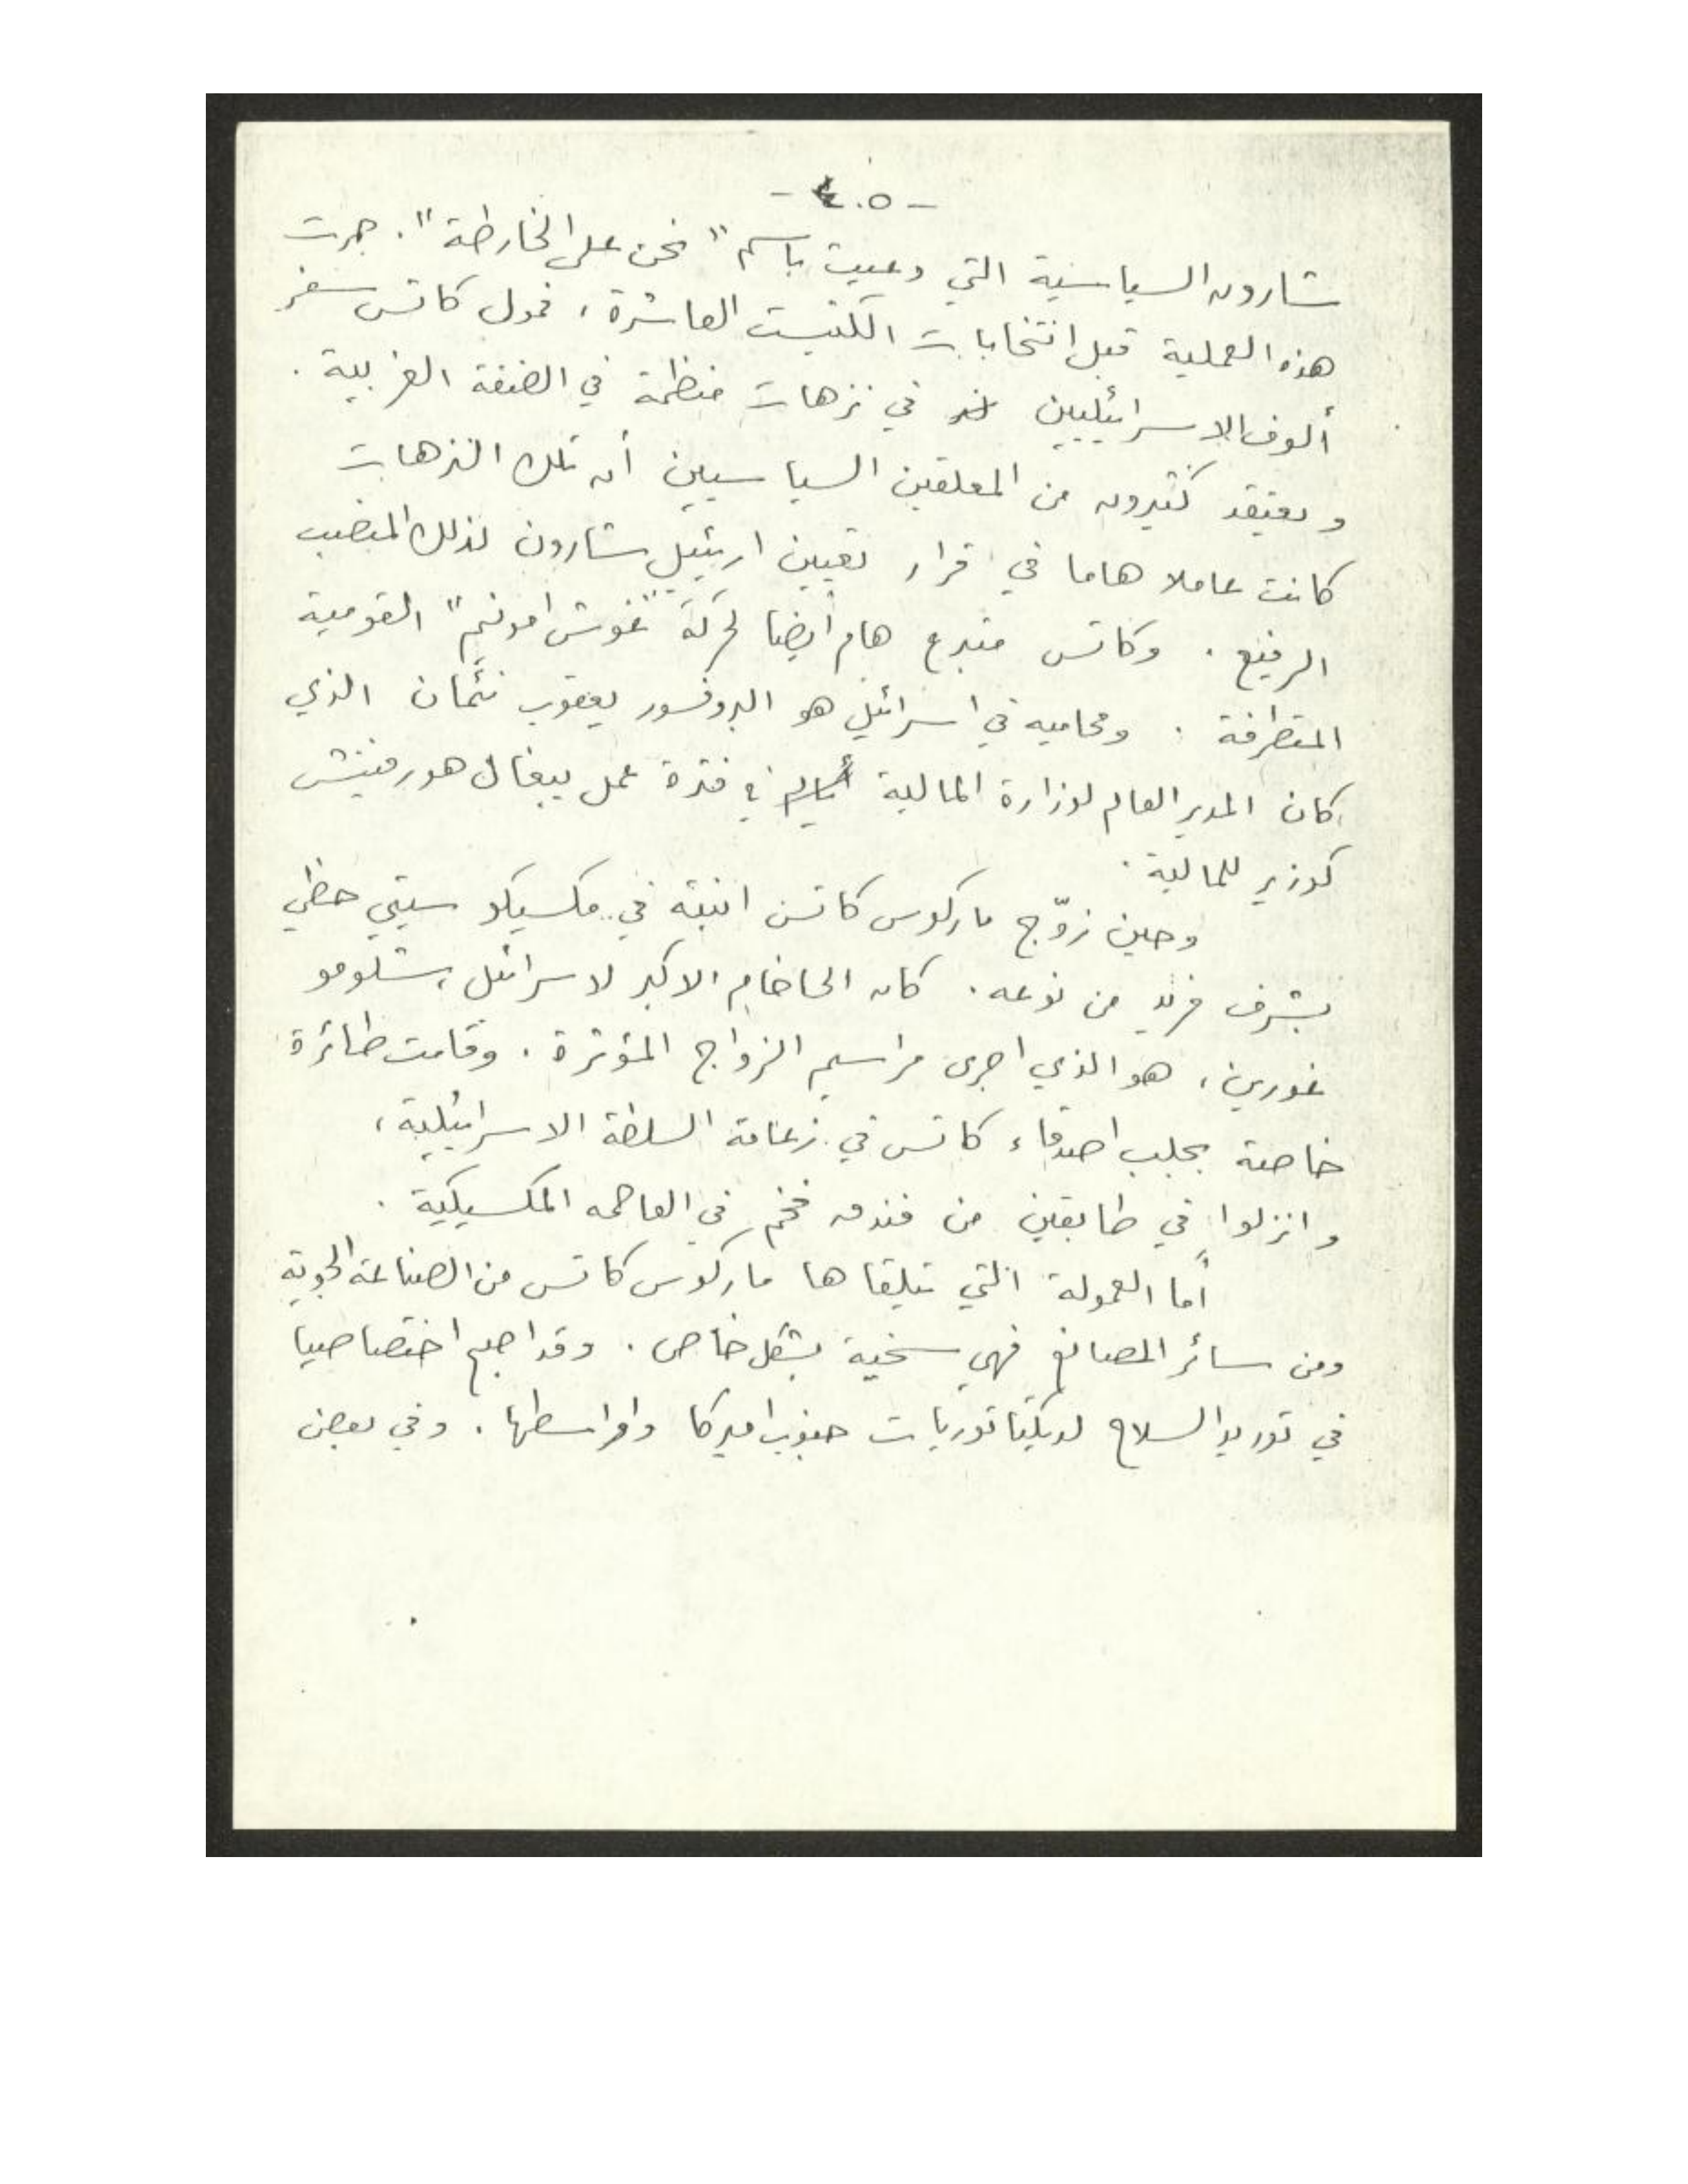 - ٤٠٥ -
شارون السياسية التي دعيت باسم "نحن على الخارطة". جرت
هذه العملية قبل انتخابات الكنيست العاشرة، فمول كاتس سفر
ألوف الاسرائيليين في نزهات منظمة في الضفة الغربية.
ويعتقد كثيرون من المعلقين السياسيين أن تلك النزهات
كانت عاملا هاما في قرار تعيين اريئيل شارون لذلك المنصب
الرفيع. وكاتس متبرع هام أيضا لحركة "غوش امونيم" القومية
المتطرفة. ومحاميه في اسرائيل هو البروفسور يعقوب نئمان الذي
كان المدير العام لوزارة المالية في فترة عمل ييغال هورفيتش
كوزير للمالية.
وحين زوّج ماركوس كاتس ابنته في مكسيكو سيتي حظي
بشرف فريد من نوعه. كان الحاخام الاكبر لاسرائيل، شلومو
غورين، هو الذي اجرى مراسيم الزواج المؤثرة. وقامت طائرة
خاصة بجلب اصدقاء كاتس في زعامة السلطة الاسرائيلية،
وانزلوا في طابقين من فندق فخم في العاصمه المكسيكية.
أما العمولة التي تلقاها ماركوس كاتس من الصناعة الجوية
ومن سائر المصانع فهي سخية بشكل خاص. وقد اصبح اختصاصيا
في توريد السلاح لديكتاتوريات جنوب اميركا واواسطها. وفي بعض